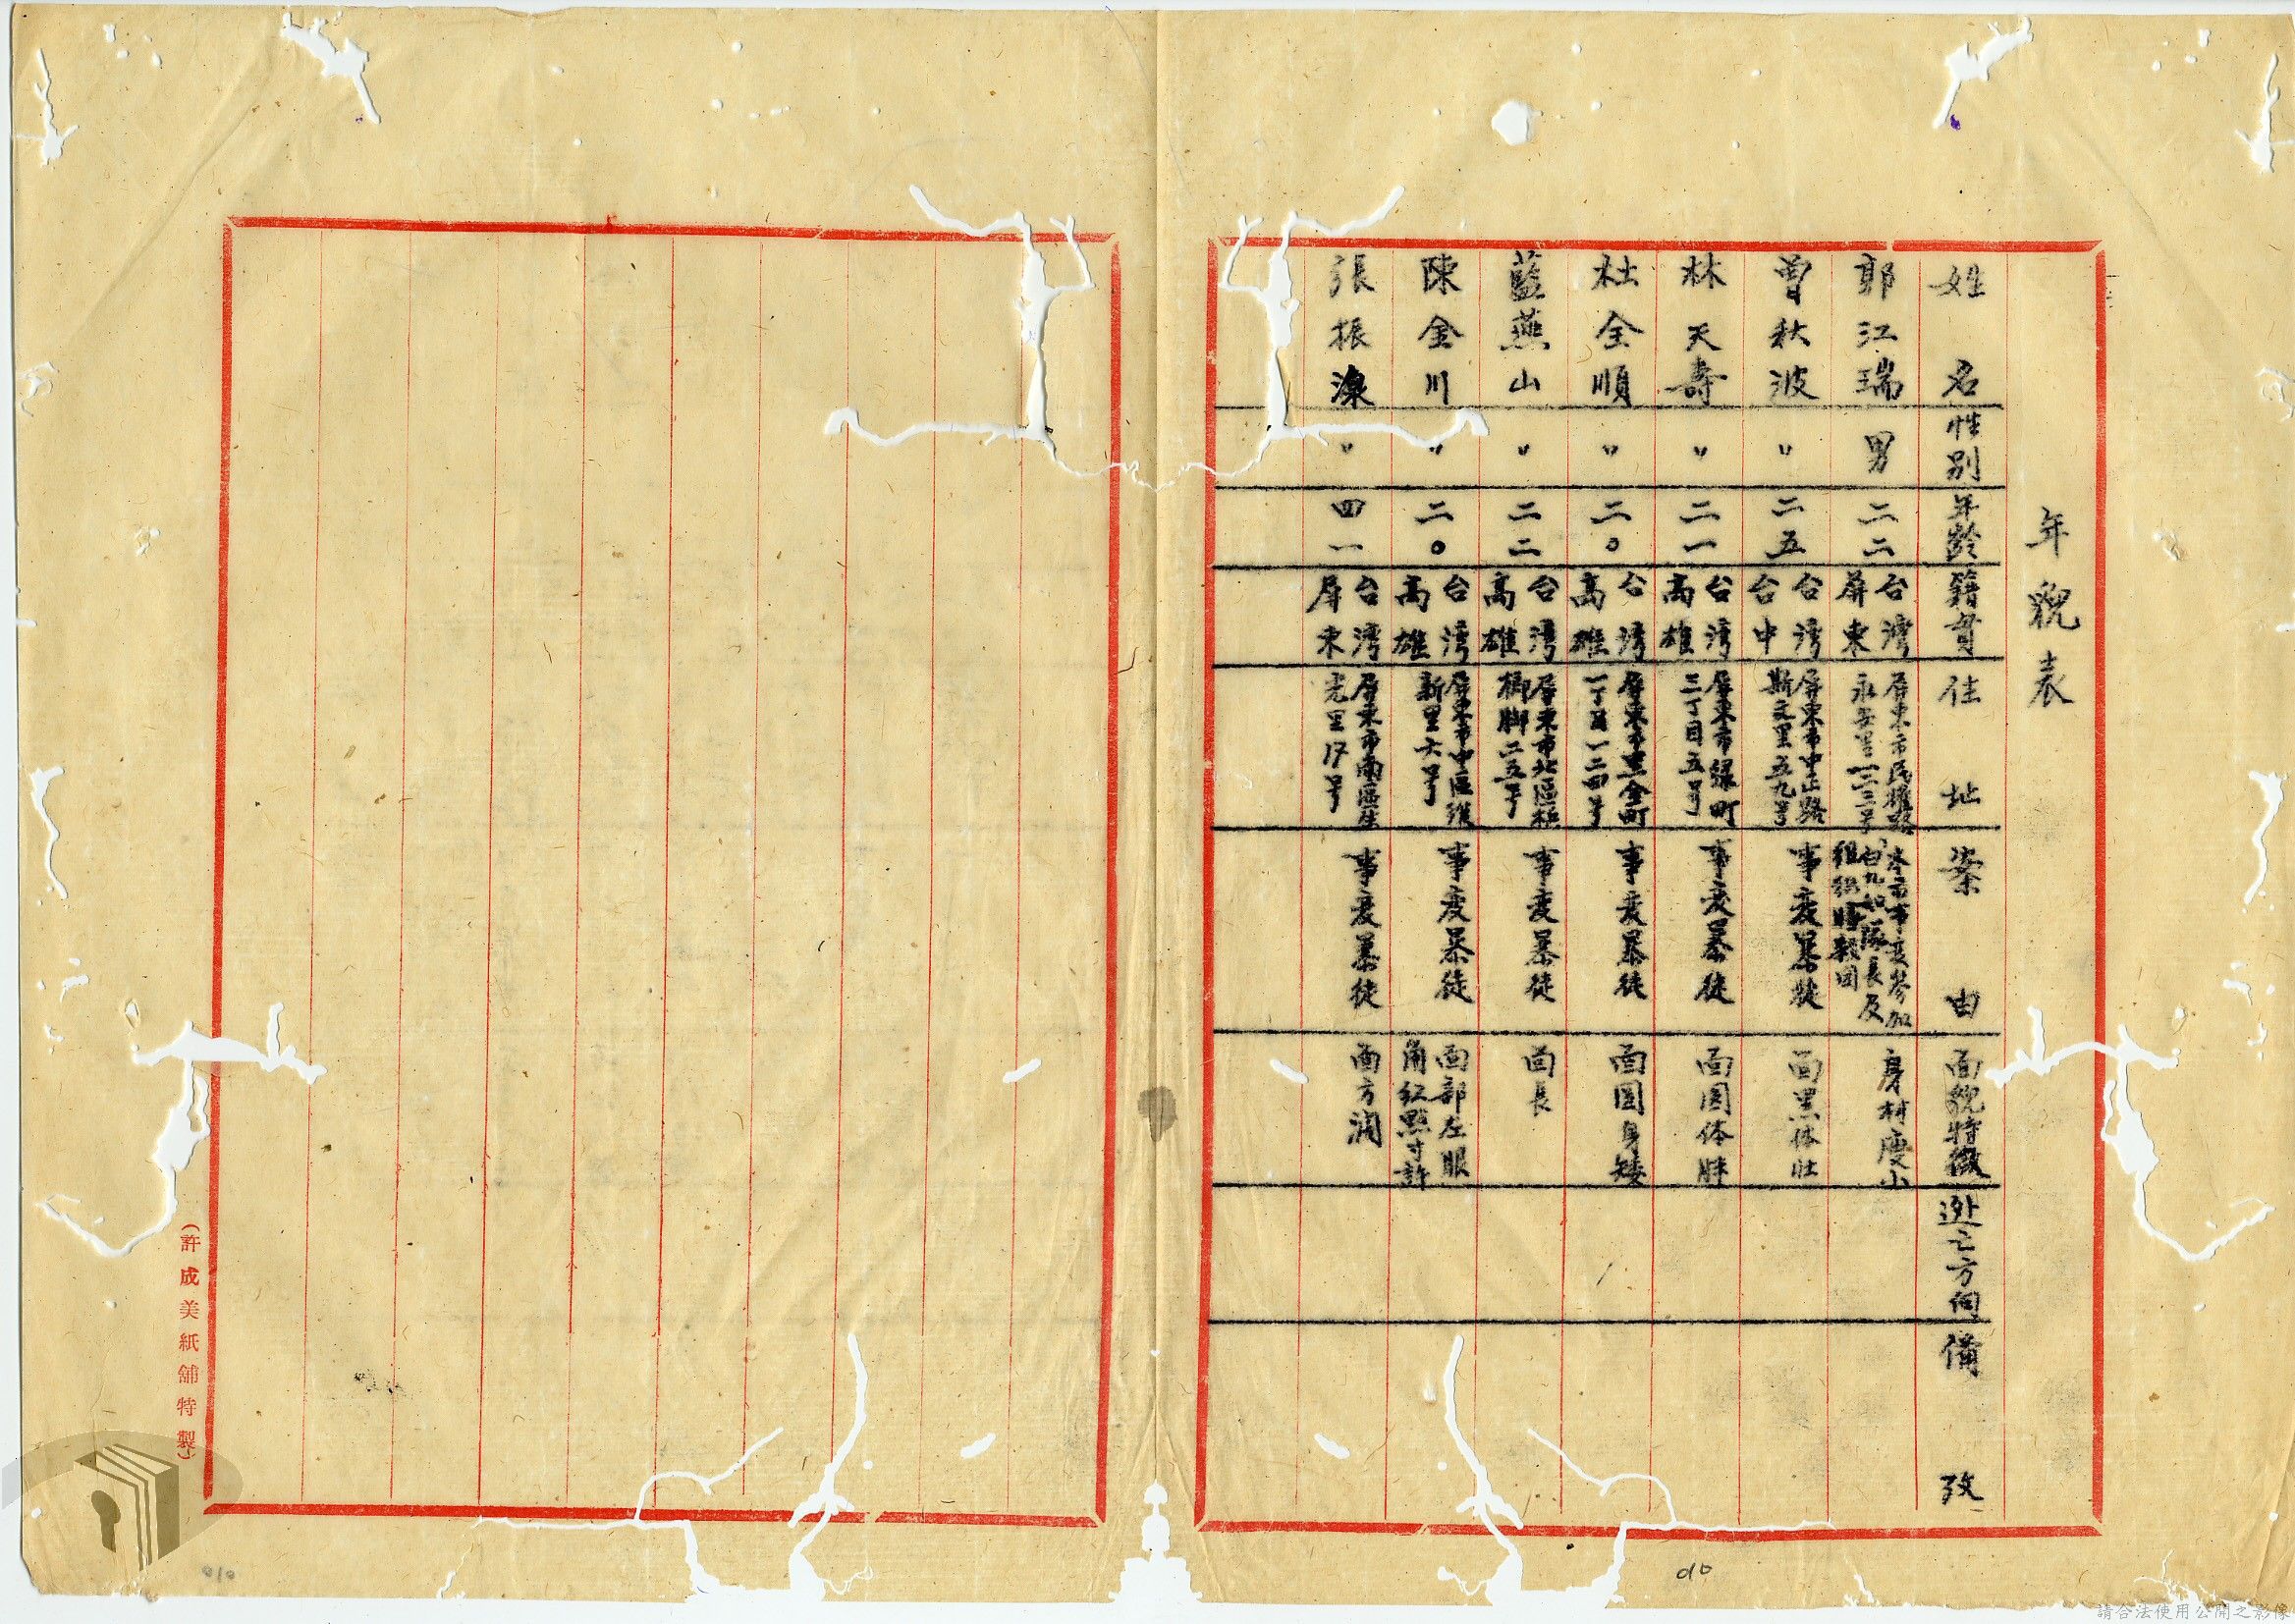 年貌表
姓名 性別 年齡 籍貫 住址 案由 面貌特徵 逃亡方向 備攷
郭江瑞 男 二二 台灣屏東 屏東市民權路永安里一三三号 本市事変參加 隊長及組織 身材瘦小
曾秋波 〃 二五 台灣台中 屏東市中正路斯文里五九号 事変暴徒 面黑体壮
林天壽 〃 二一 台灣高雄 屏東市綠町三丁目五号 事変暴徒 面圓体胖
杜全順 〃 二〇 台灣高雄 屏東市黑金町一丁目一二四号 事変暴徒 面圓身矮
藍燕山 〃 二二 台灣高雄 屏東市北區 脚二五号 事変暴徒 面長
陳金川 〃 二〇 台灣高雄 屏東市中區維新里六号 事変暴徒 面部左眼角紅點寸許
張振 〃 四一 台灣屏東 屏東市南區 光里17号 事変暴徒 面方濶
(許成美紙舖特製)
010
010
請合法使用公開之影像